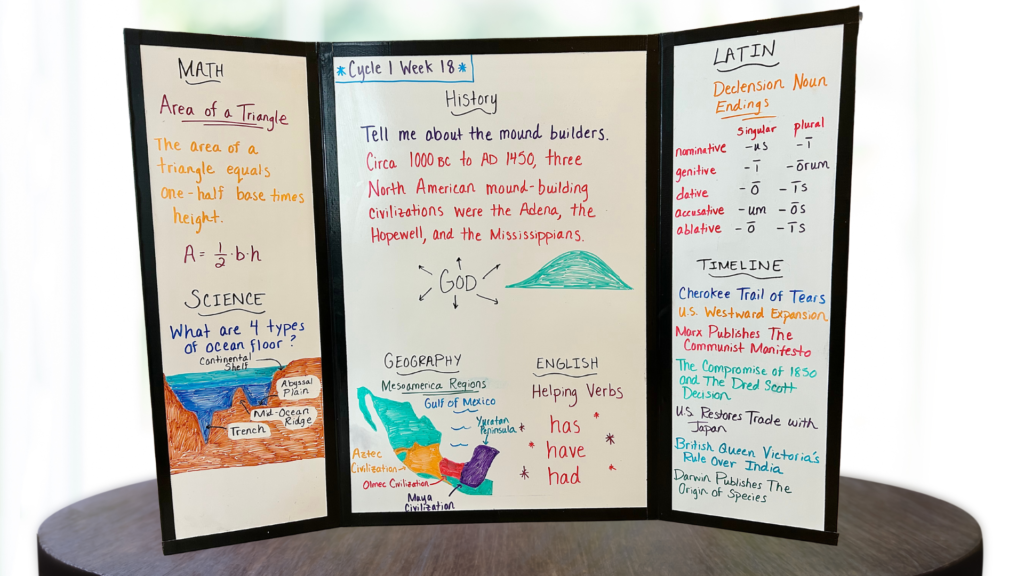 MATH
Area of a Triangle
The area of a
triangle equals
one-half base times
height.
A = 1/2 · b · h
SCIENCE
What are 4 types
of ocean floor?
Continental
Shelf
Abyssal
Plain
Mid-Ocean
Ridge
Trench
*Cycle 1 Week 18*
History
Tell me about the mound builders.
Circa 1000 BC to AD 1450, three
North American mound-building
civilizations were the Adena, the
Hopewell, and the Mississippians.
GOD
GEOGRAPHY
Mesoamerica Regions
Gulf of Mexico
Yucatan
Peninsula
Aztec
Civilization
Olmec Civilization
Maya
Civilization
ENGLISH
Helping Verbs
has
have
had
LATIN
Declension Noun
Endings
singular plural
nominative -us -ī
genitive -ī -ōrum
dative -ō -īs
accusative -um -ōs
ablative -ō -īs
TIMELINE
Cherokee Trail of Tears
U.S. Westward Expansion
Marx Publishes The
Communist Manifesto
The Compromise of 1850
and The Dred Scott
Decision
U.S. Restores Trade with
Japan
British Queen Victoria's
Rule Over India
Darwin Publishes The
Origin of Species